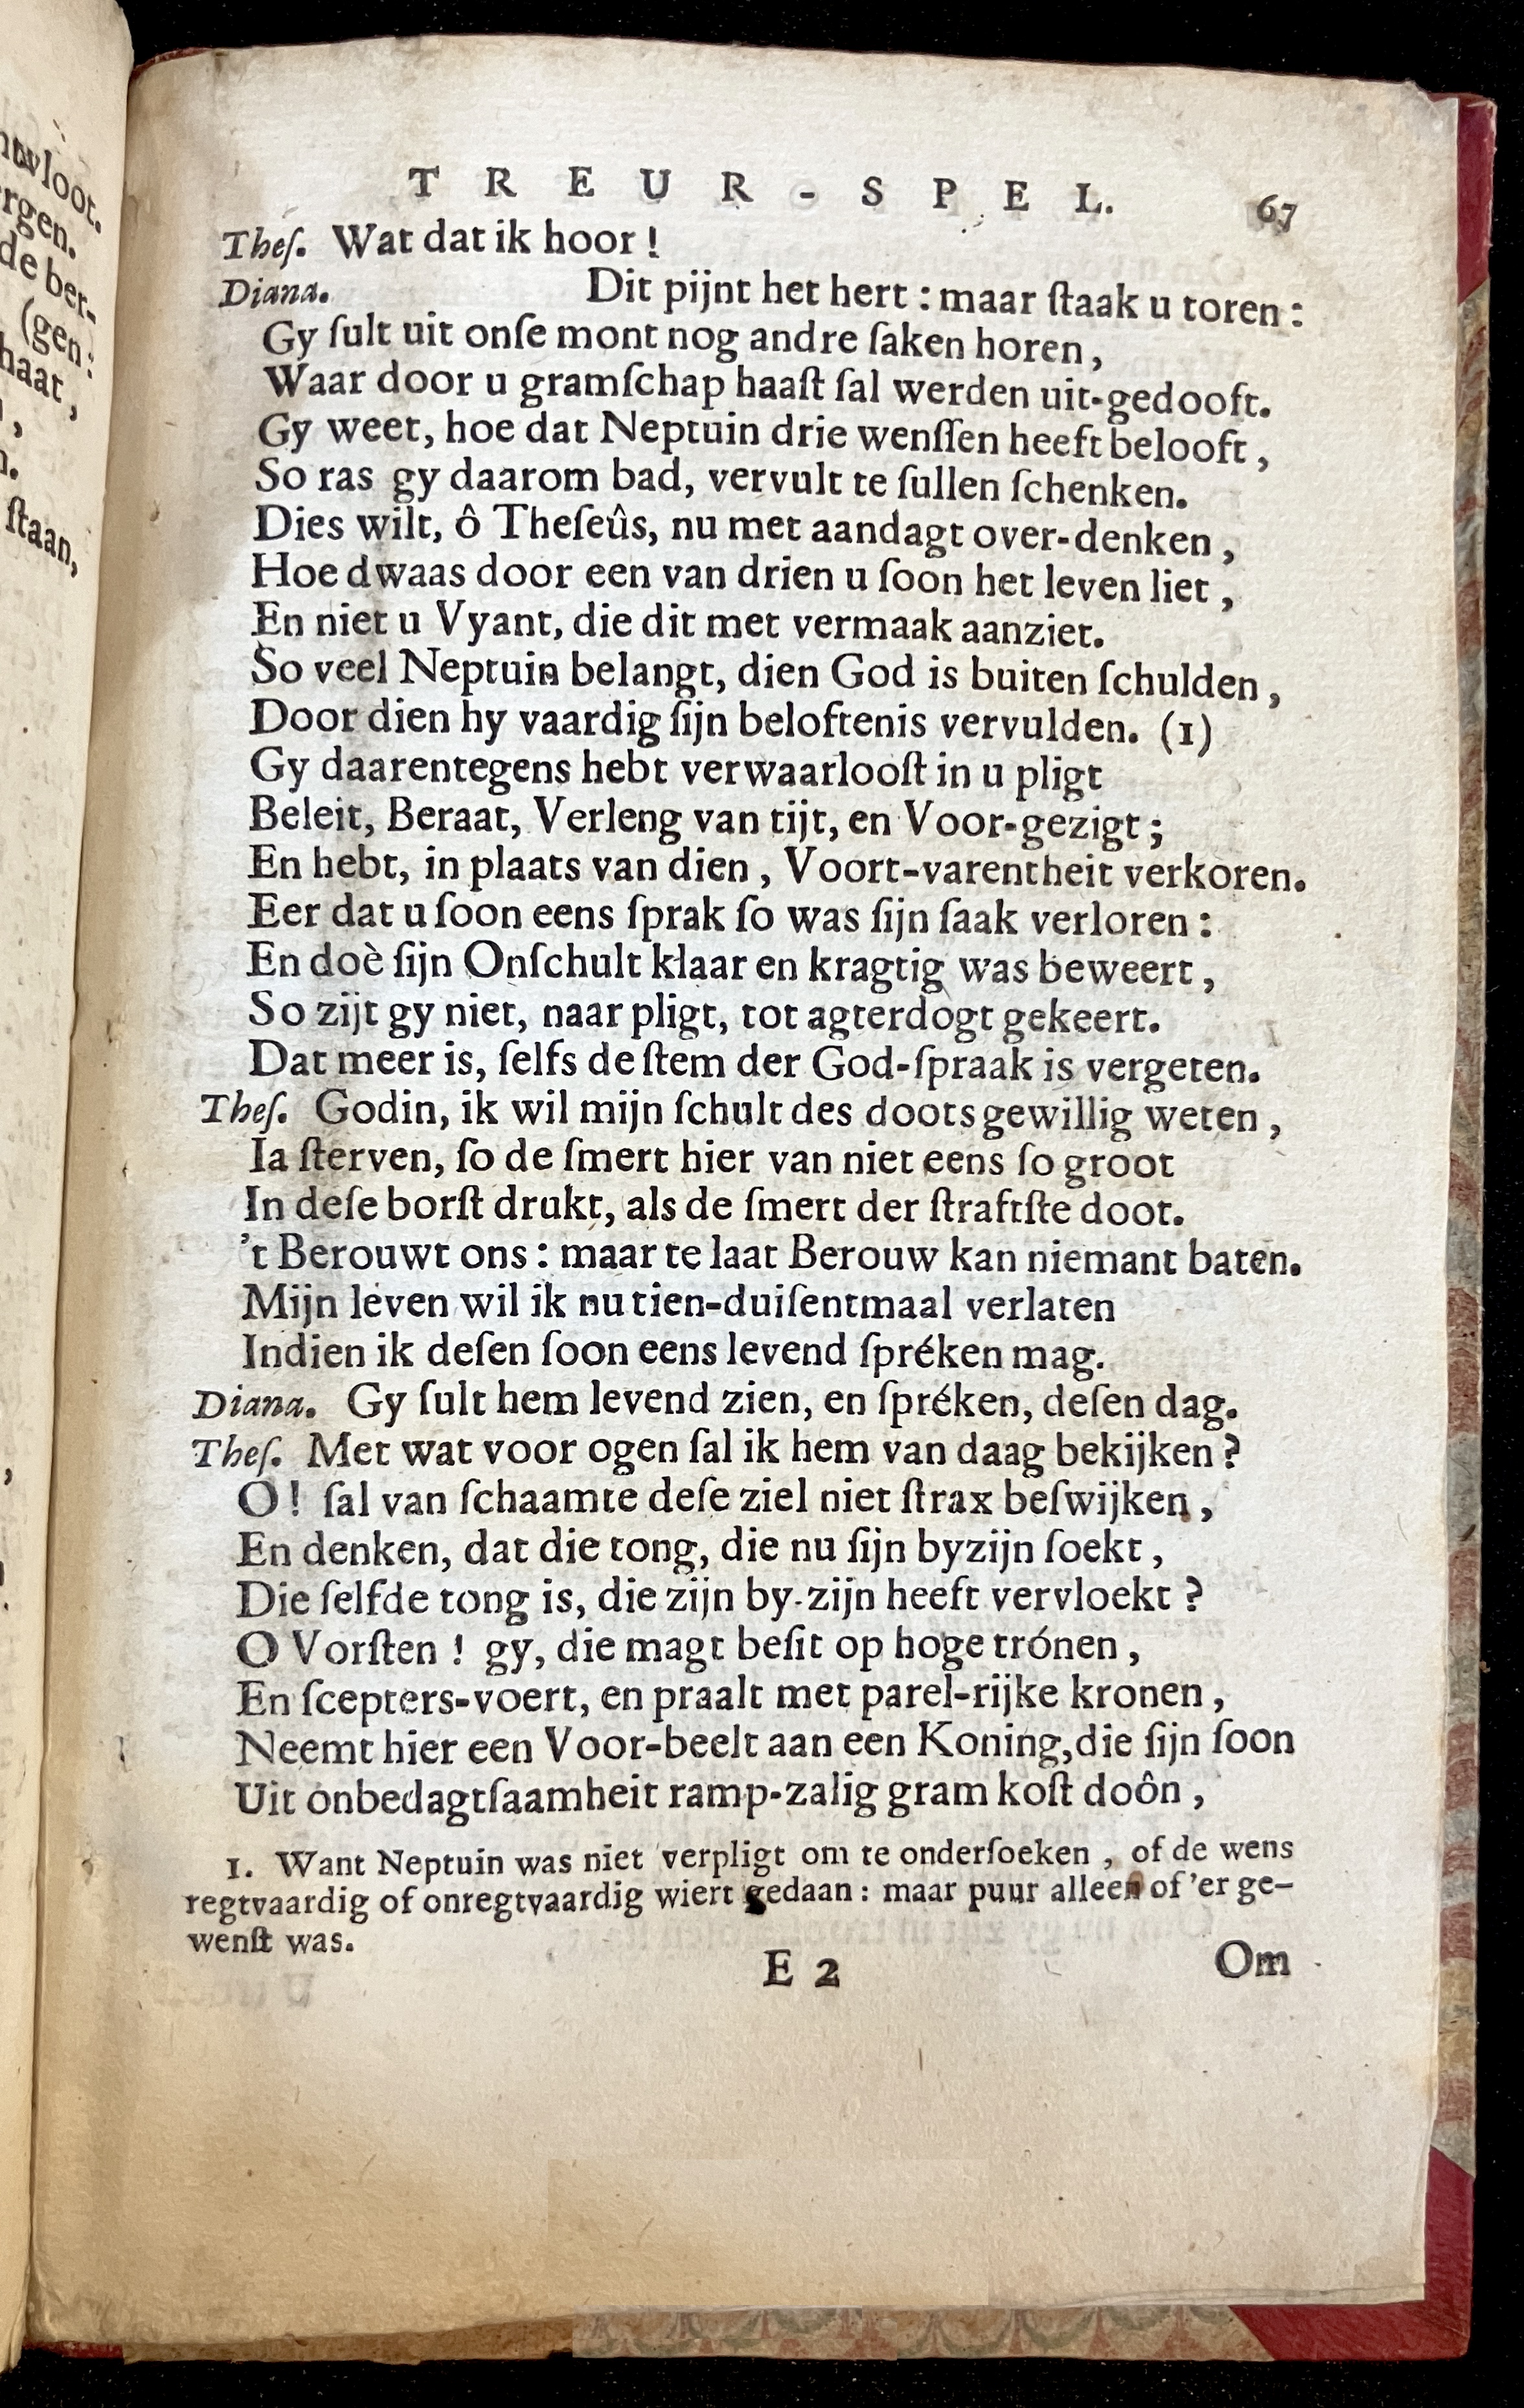 TREUR-SPEL. 67
Theſ. Wat dat ik hoor!
Diana. Dit pijnt het hert: maar ſtaak u toren:
Gy ſult uit onſe mont nog andre ſaken horen,
Waar door u gramſchap haaſt ſal werden uit-gedooft.
Gy weet, hoe dat Neptuin drie wenſſen heeft belooft,
So ras gy daarom bad, vervult te ſullen ſchenken.
Dies wilt, ô Theſeûs, nu met aandagt over-denken,
Hoe dwaas door een van drien u ſoon het leven liet,
En niet u Vyant, die dit met vermaak aanziet.
So veel Neptuin belangt, dien God is buiten ſchulden,
Door dien hy vaardig ſijn beloftenis vervulden. (1)
Gy daarentegens hebt verwaarlooſt in u pligt
Beleit, Beraat, Verleng van tijt, en Voor-gezigt;
En hebt, in plaats van dien, Voort-varentheit verkoren.
Eer dat u ſoon eens ſprak ſo was ſijn ſaak verloren:
En doè ſijn Onſchult klaar en kragtig was beweert,
So zijt gy niet, naar pligt, tot agterdogt gekeert.
Dat meer is, ſelfs de ſtem der God-ſpraak is vergeten.
Theſ. Godin, ik wil mijn ſchult des doots gewillig weten,
Ia ſterven, ſo de ſmert hier van niet eens ſo groot
In deſe borſt drukt, als de ſmert der ſtraftſte doot.
't Berouwt ons: maar te laat Berouw kan niemant baten.
Mijn leven wil ik nu tien-duiſentmaal verlaten
Indien ik deſen ſoon eens levend ſpréken mag.
Diana. Gy ſult hem levend zien, en ſpréken, deſen dag.
Theſ. Met wat voor ogen ſal ik hem van daag bekijken?
O! ſal van ſchaamte deſe ziel niet ſtrax beſwijken,
En denken, dat die tong, die nu ſijn byzijn ſoekt,
Die ſelfde tong is, die zijn by-zijn heeft vervloekt?
O Vorſten! gy, die magt beſit op hoge trónen,
En ſcepters-voert, en praalt met parel-rijke kronen,
Neemt hier een Voor-beelt aan een Koning, die ſijn ſoon
Uit onbedagtſaamheit ramp-zalig gram koſt doôn,
1. Want Neptuin was niet verpligt om te onderſoeken, of de wens
regtvaardig of onregtvaardig wiert gedaan: maar puur alleen of 'er ge-
wenſt was.
E 2 Om